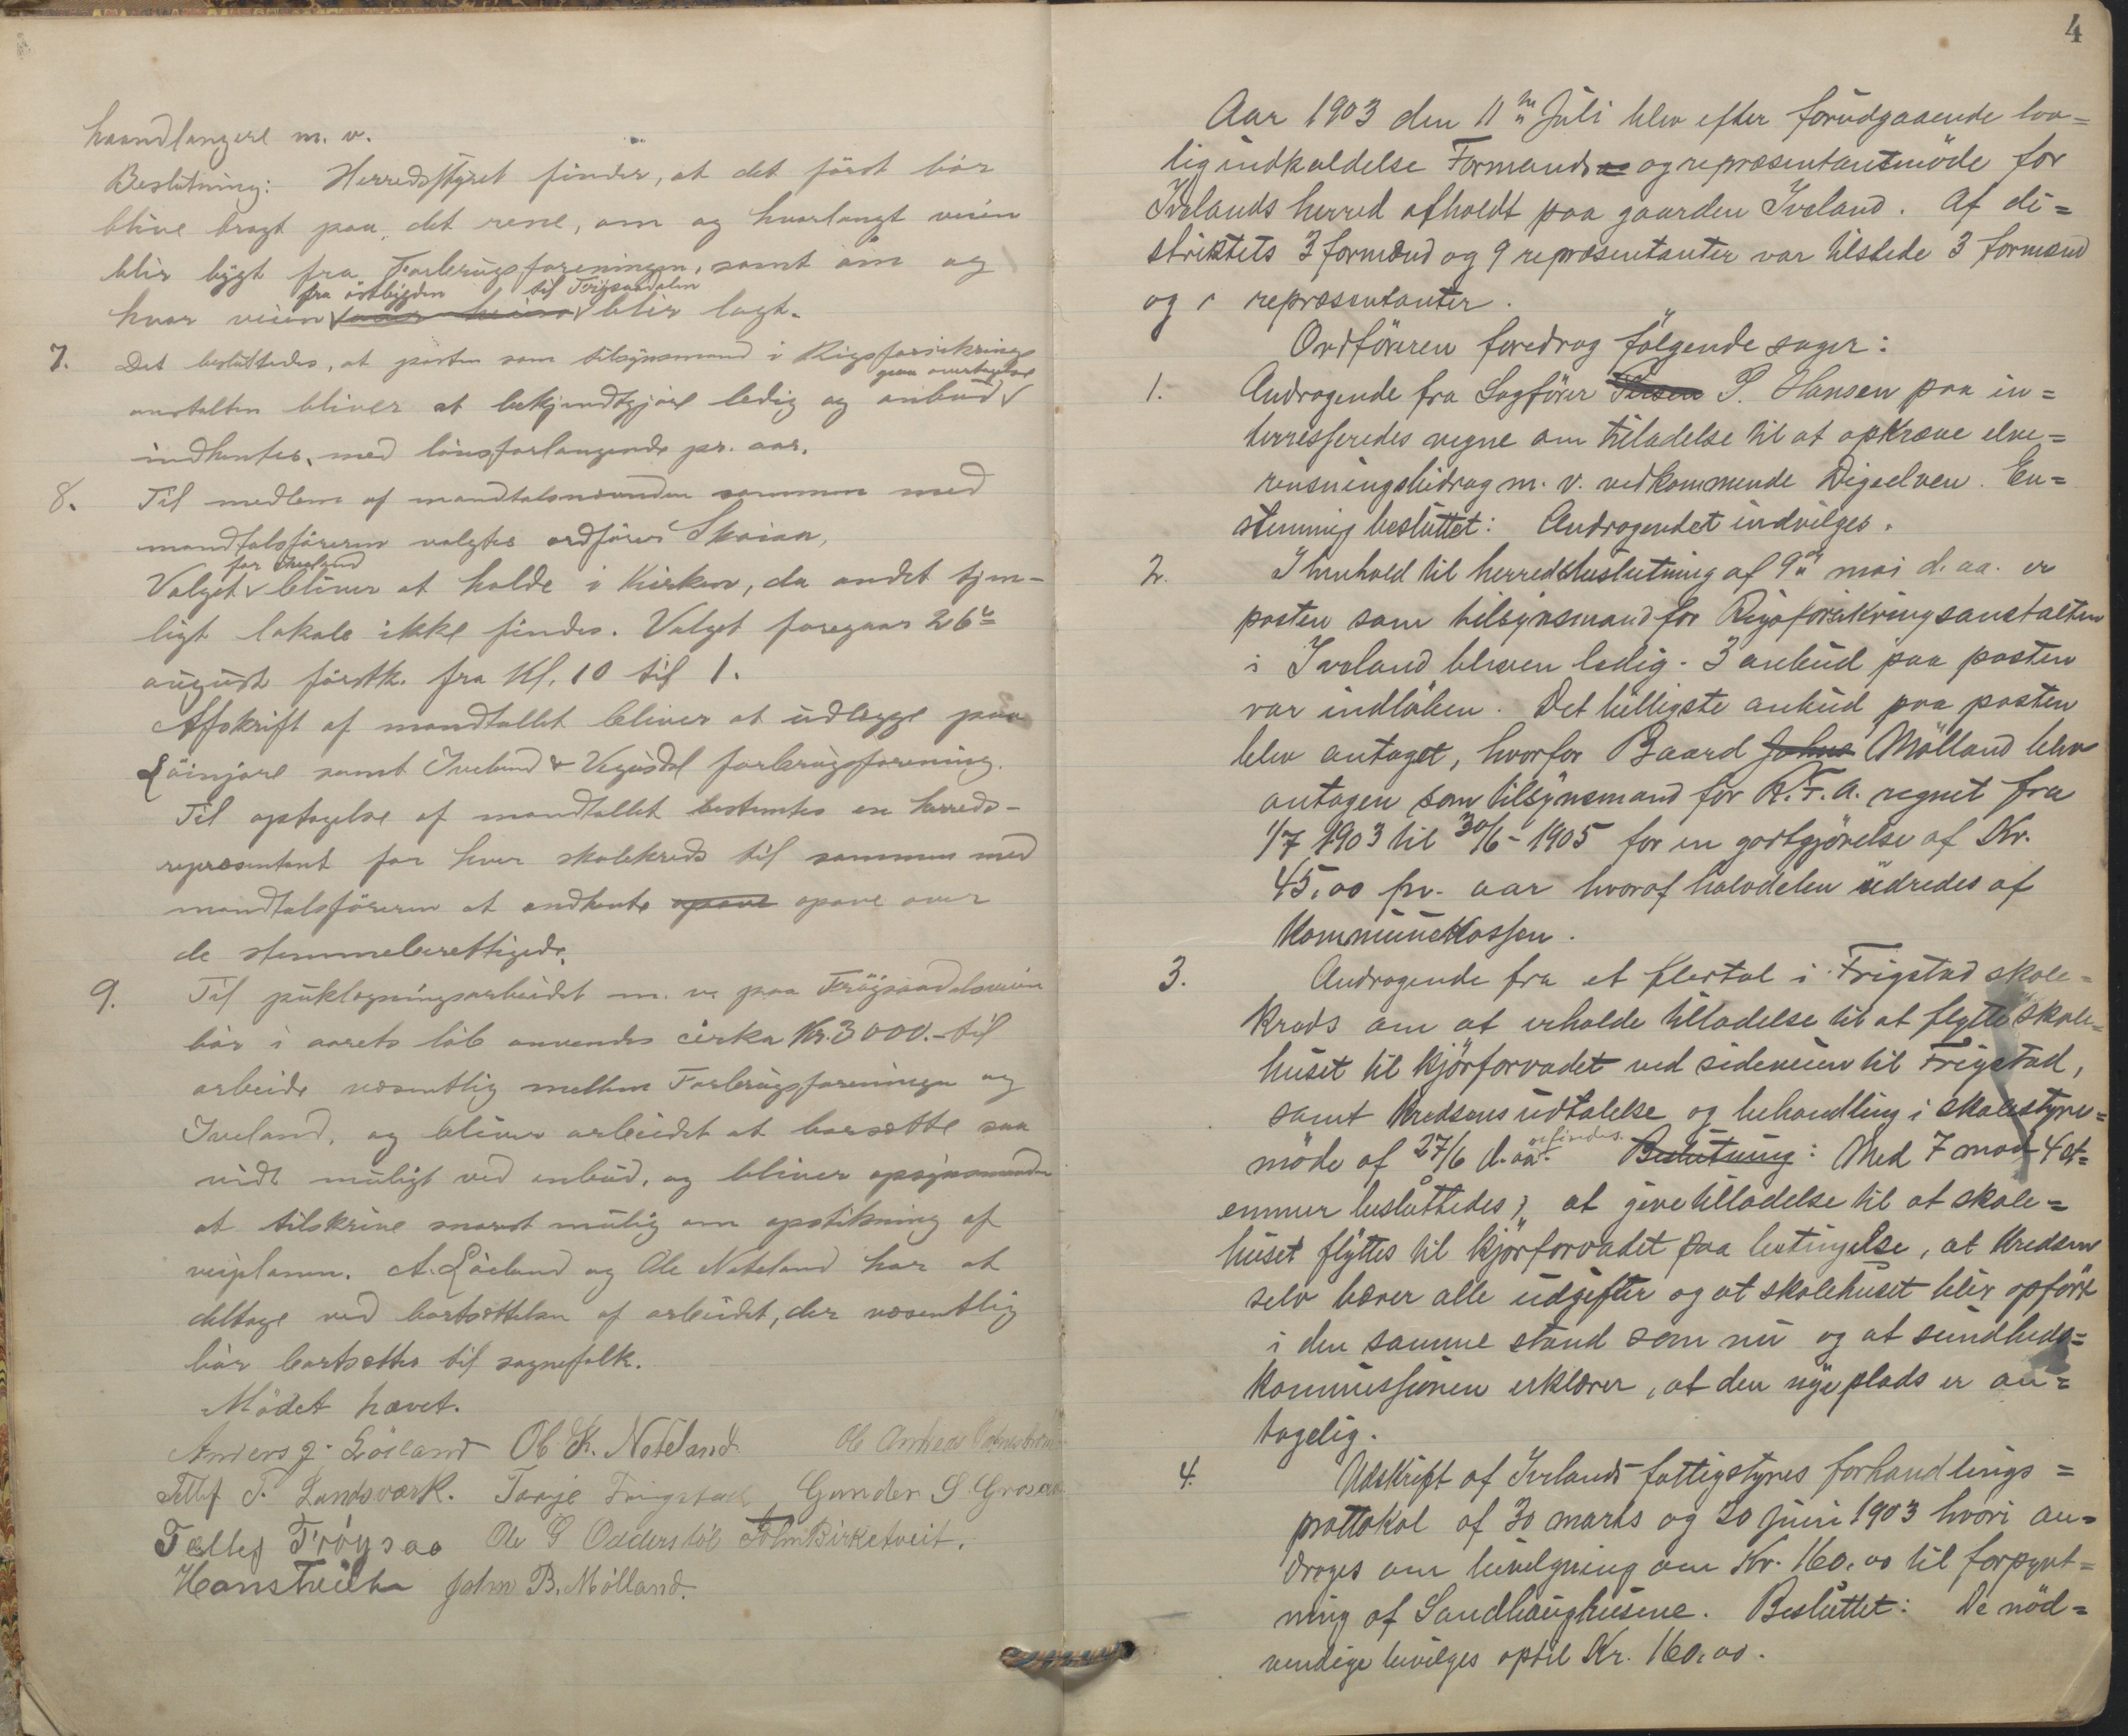 haandlangere m. v.
Beslutning: Herredsstyret finder, at det först bör
blive bragt paa det rene, om og hvorlangt veien
blir bygt fra Forbrugsforeningen, samt om og
fra östbygden til Frøysaadalen
hvor veien blir lagt.
7. Det besluttedes, at posten som tilsynsmand i Rigsforsikrings
paa overtagelse
anstalten bliver at bekjendtgjöre ledig og anbud
indhentes, med lönsforlangende pr. aar.
8. Til medlem af mandtalsnævnden sammen med
mandtalsföreren valgtes ordförer Skaiaa,
for Iveland
Valget bliver at holde i Kirken, da andet tjen-
ligt lokale ikke findes. Valget foregaar 26de
august förstk. fra Kl. 10 til 1.
Afskrift af mandtallet bliver at udlægge paa
samt Iveland & Vegusdal forbrugsforening.
Til optagelse af mandtallet bestemtes en herreds-
repræsentant for hver skolekreds til sammen med
mandtalsföreren at indhente opave opave over
de stemmeberettigede.
9. Til puklægningsarbeidet m. v. paa Fröysaadalsveien
bör i aarets löb anvendes cirka Kr. 3000.- til
arbeide væsentlig mellem Forbrugsforeningen og
Iveland, og bliver arbeidet at bortsætte saa
vidt muligt ved anbud, og bliver opsynsmanden
at tilskrive snarest mulig om opstikning af
veiplanen. A. Löiland og Ole Nateland har at
deltage ved bortsættelsen af arbeidet, der væsentlig
bör bortsættes til sognefolk.
Mödet hævet.
Anders J. Löiland Ole K. Nateland. Ole Andreas
Tellef T. Landsværk. Torje Frigstad Gunder S. Grosaas
Tellef Frøysaa Ole G Odderstöl John Birketveit.
Hans Tveiten John B. Mölland.
4
Aar 1903 den 11te Juli blev efter forudgaaende lov=
lig indkaldelse Formands og repræsentantmöde for
Ivelands herred afholdt paa gaarden Iveland. Af di=
striktets 3 formænd og 9 repræsentanter var tilstede 3 formænd
og repræsentanter.
Ordföreren foredrog fölgende sager:
1. Andragende fra Sagförer P. Hansen paa in=
terresseredes vegne om tiladelse til at opkræve elve=
rensningsbidrag m. v. vedkommende Digeelven. En=
stemmig besluttet: Andragendet indvilges.
2. I henhold til herredsbeslutning af 9de mai d. aa. er
posten som tilsynsmand for Rigsforsikringsanstalten
i Iveland bleven ledig. 3 anbud paa posten
var indlöben. Det billigste anbud paa posten
blev antaget, hvorfor Baard Johns Mölland blev
antagen som tilsynsmand for R.F.A. regnet fra
1/7 1903 til 30/6 - 1905 for en godtgjörelse af Kr.
45,00 pr. aar hvoraf halvdelen udredes af
Kommunekassen.
3. Andragende fra et flertal i Frigstad skole=
kreds om at erholde tilladelse til at flytte skole=
huset til kjörforvadet ved sideveien til Frigstad,
samt kredsens udtalelse og behandling i skolestyre=
möde af 27/6 d. aa. Beslutning: Med 7 mod 4 st=
emmer besluttedes, at give tilladelse til at skole=
huset flyttes til kjörforvadet paa betingelse, at kredsen
selv bærer alle udgifter og at skolehuset blir opfört
i den samme stand som nu og at sundheds=
kommissionen erklærer, at den nye plads er an=
tagelig.
4. Udskrift af Ivelands fattigstyres forhandlings=
prottokol af 30 marts og 20 juni 1903 hvori an=
drages om bevilgning om Kr. 160,00 til forpynt=
ning af Sandhaughusene. Besluttet: De nöd=
vendige bevilges optil Kr. 160,00.